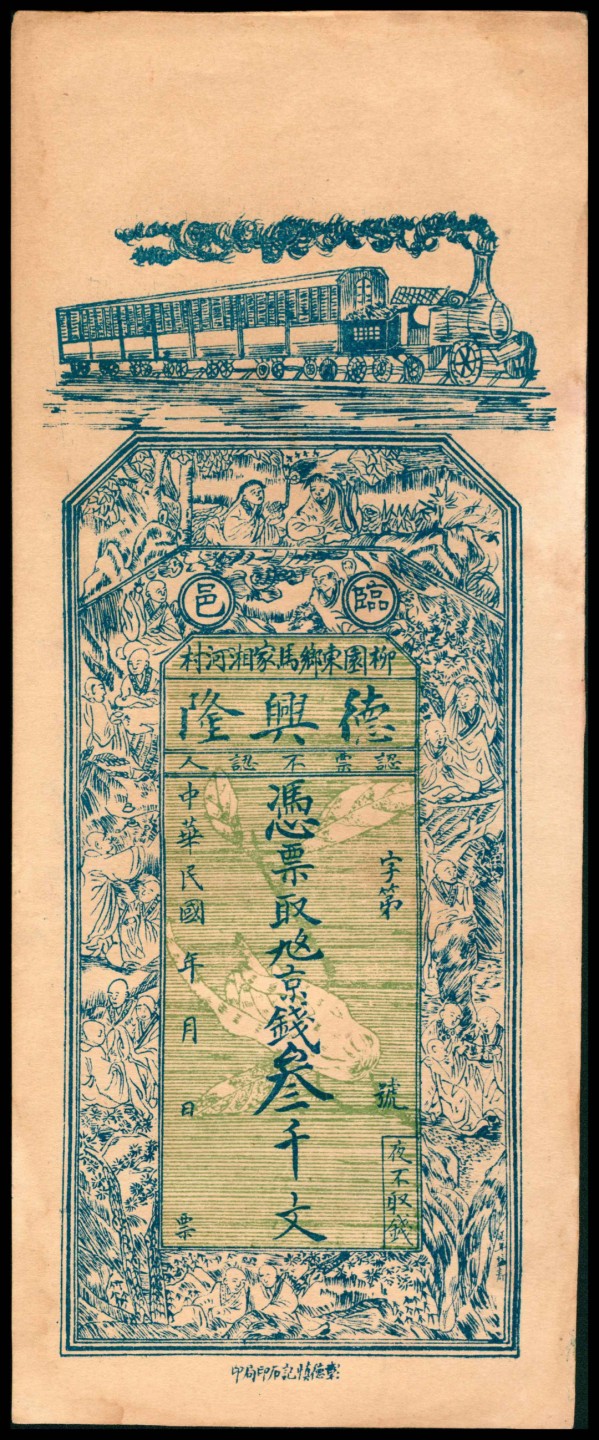 臨邑
柳園東鄉馬家湘河村
德興隆
認票不認人
字第 號
夜不取錢
憑票取京錢叁千文
中華民國 年 月 日 票
彰德慎記石印局印